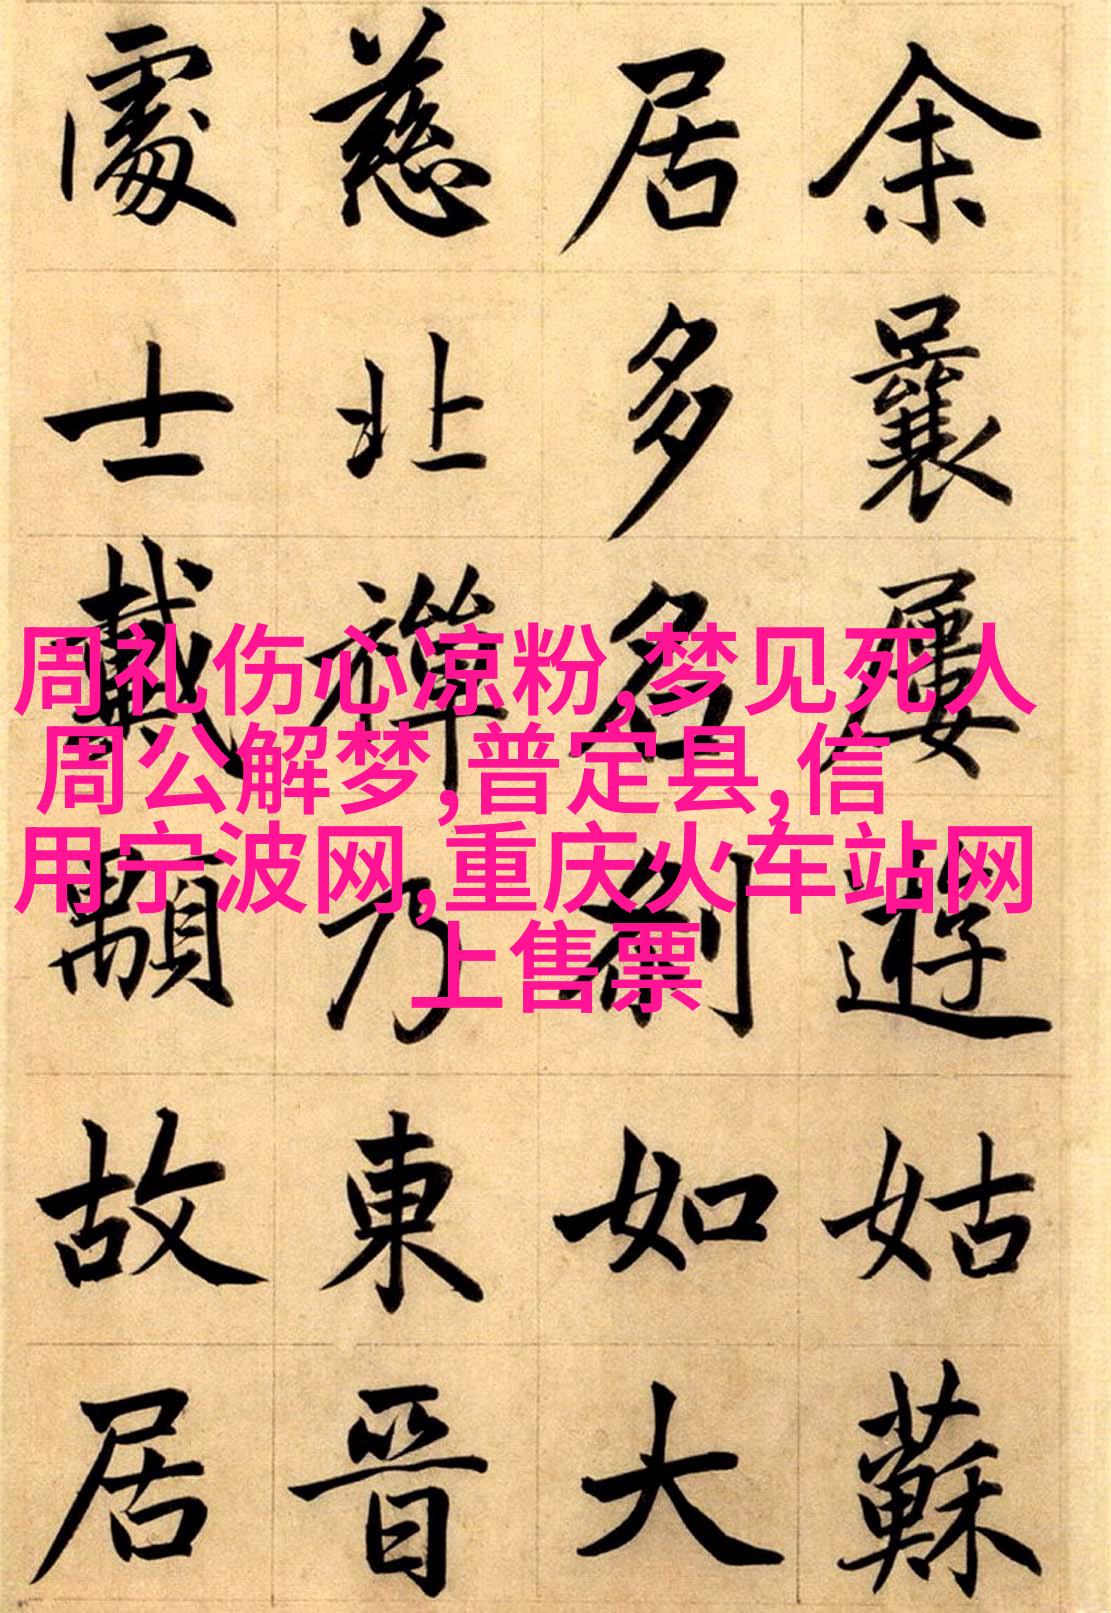 余曩屢遊姑蘇
居多名刹如大
慈北禪乃東晉
處士戴顒故居
周礼伤心凉粉,梦见死人
周公解梦,普定县,信
用宁波网,重庆火车站网
上售票